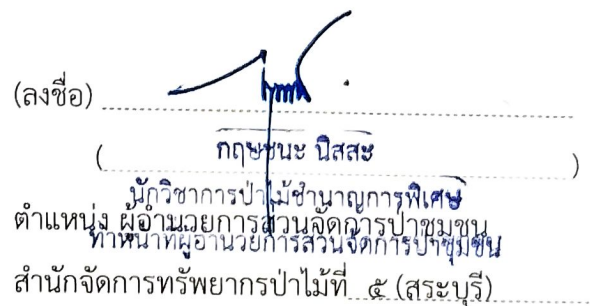 (ลงชื่อ)
(กฤษชนะ นิสสะ)
นักวิชาการป่าไม้ชำนาญการพิเศษ
ตำแหน่ง ผู้อำนวยการส่วนจัดการป่าชุมชน
ทำหน้าที่ผู้อำนวยการส่วนจัดการป่าชุมชน
สำนักจัดการทรัพยากรป่าไม้ที่ ๕ (สระบุรี)